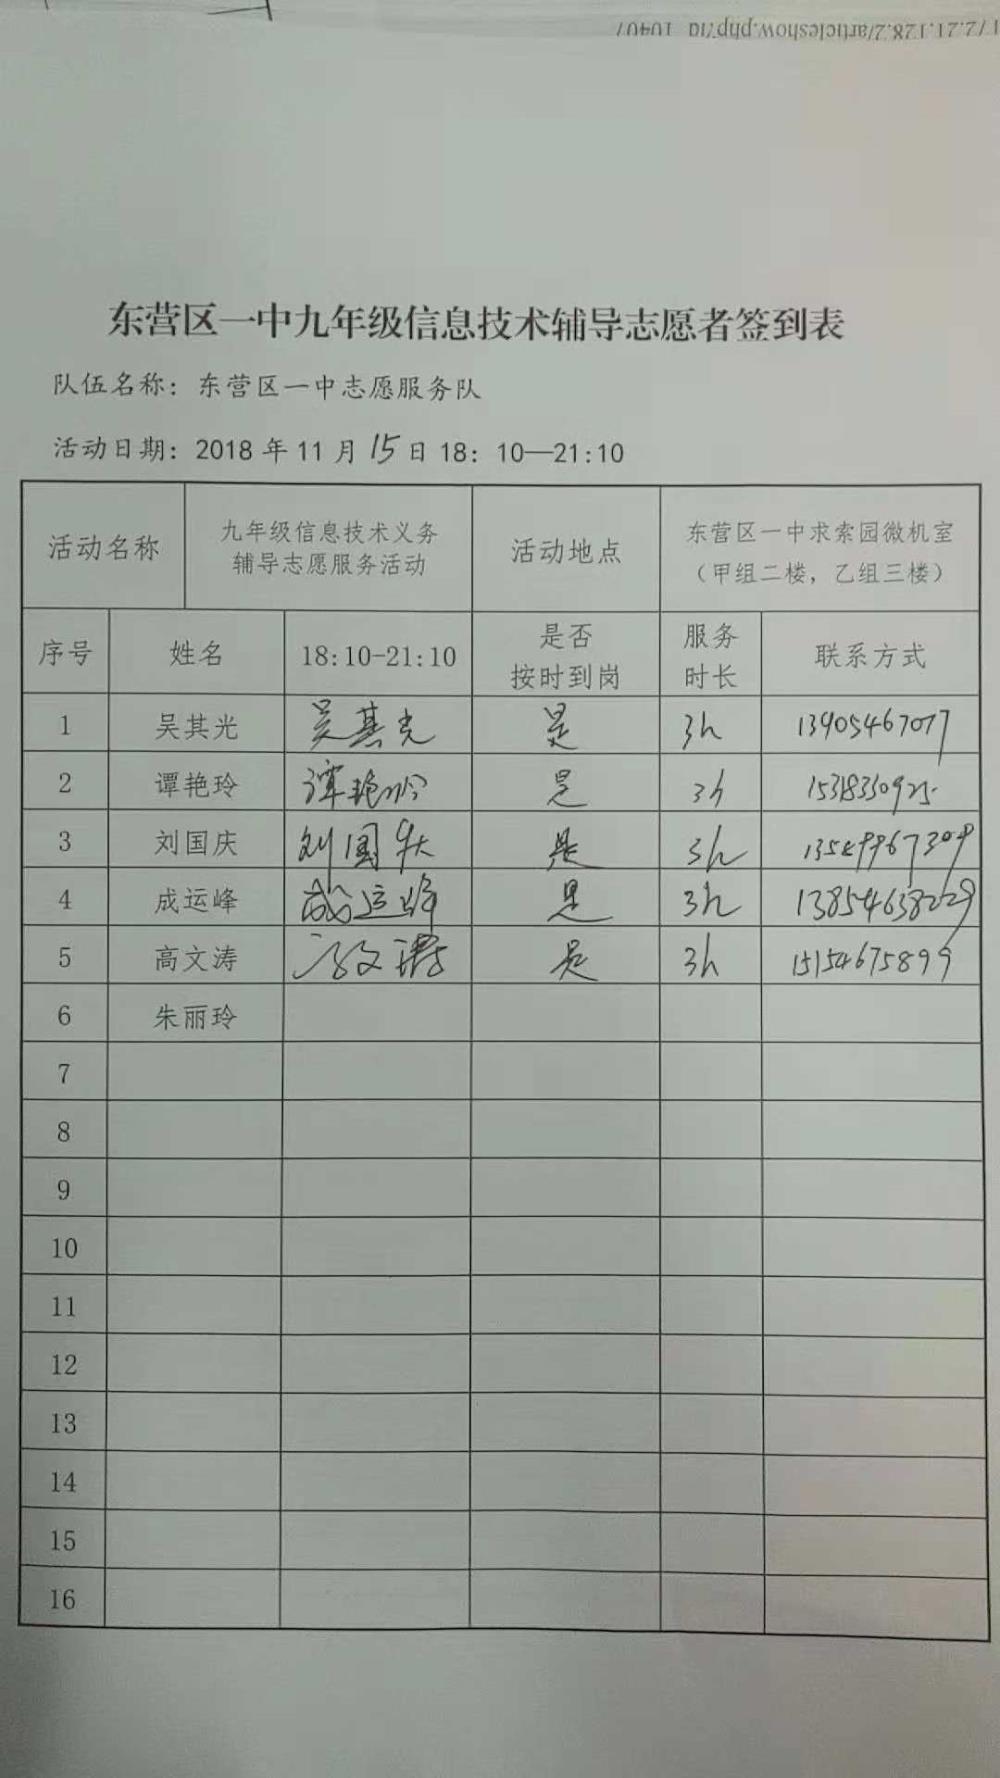 东营区一中九年级信息技术辅导志愿者签到表
队伍名称：东营区一中志愿服务队
活动日期：2018 年 11 月 15 日 18：10—21:10
活动名称 九年级信息技术义务辅导志愿服务活动 活动地点 东营区一中求索园微机室（甲组二楼，乙组三楼）
序号 姓名 18:10-21:10 是否按时到岗 服务时长 联系方式
1 吴其光 吴其光 是 3h 13905467077
2 谭艳玲 谭艳玲 是 3h
3 刘国庆 刘国庆 是 3h
4 成运峰 成运峰 是 3h 13854638229
5 高文涛 高文涛 是 3h 15154675899
6 朱丽玲
7
8
9
10
11
12
13
14
15
16